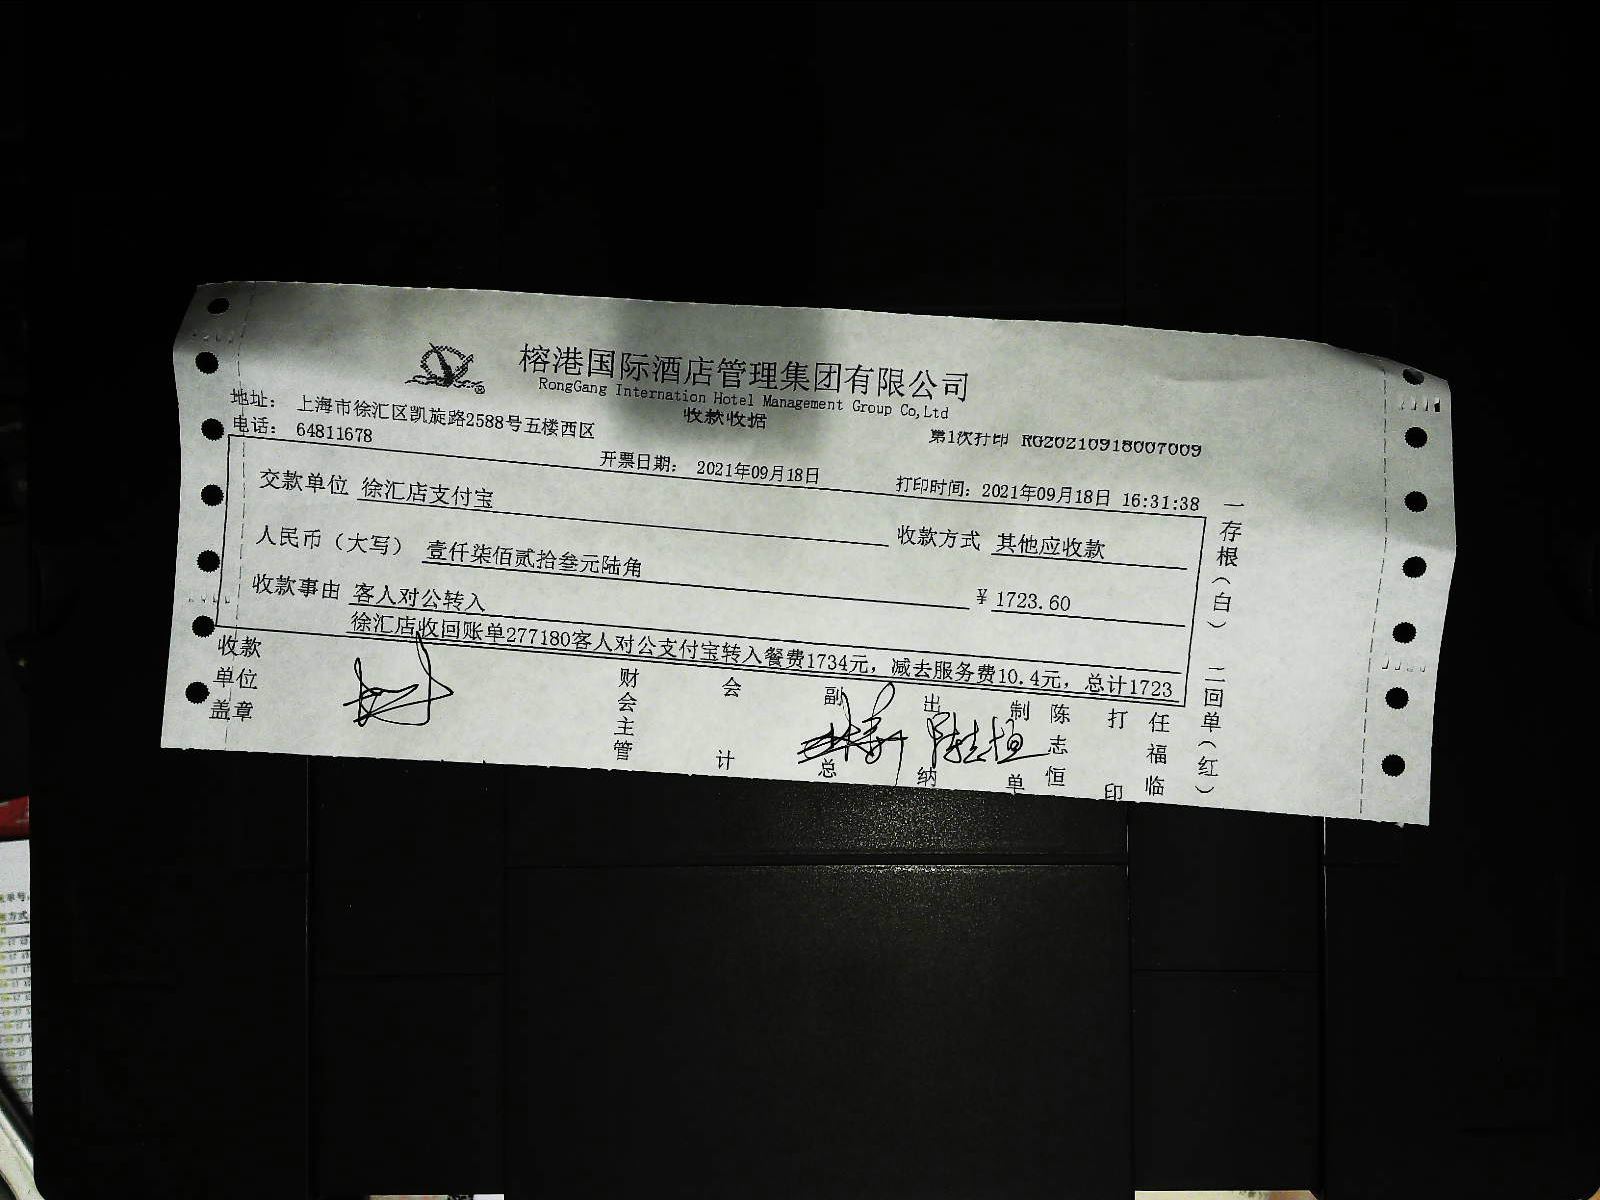 榕港国际酒店管理集团有限公司
RongGang Internation Hotel Management Group Co,Ltd
收款收据
地址： 上海市徐汇区凯旋路2588号五楼西区
电话： 64811678
第1次打印 RG20210918007009
开票日期： 2021年09月18日
打印时间：2021年09月18日 16:31:38
交款单位 徐汇店支付宝
收款方式 其他应收款
人民币（大写） 壹仟柒佰贰拾叁元陆角
¥ 1723.60
收款事由 客人对公转入
徐汇店收回账单277180客人对公支付宝转入餐费1734元，减去服务费10.4元，总计1723
收款单位盖章
财会主管
会计
副总
出纳
陈志恒
制单
陈志恒
打印
任福临
一存根（白）
二回单（红）